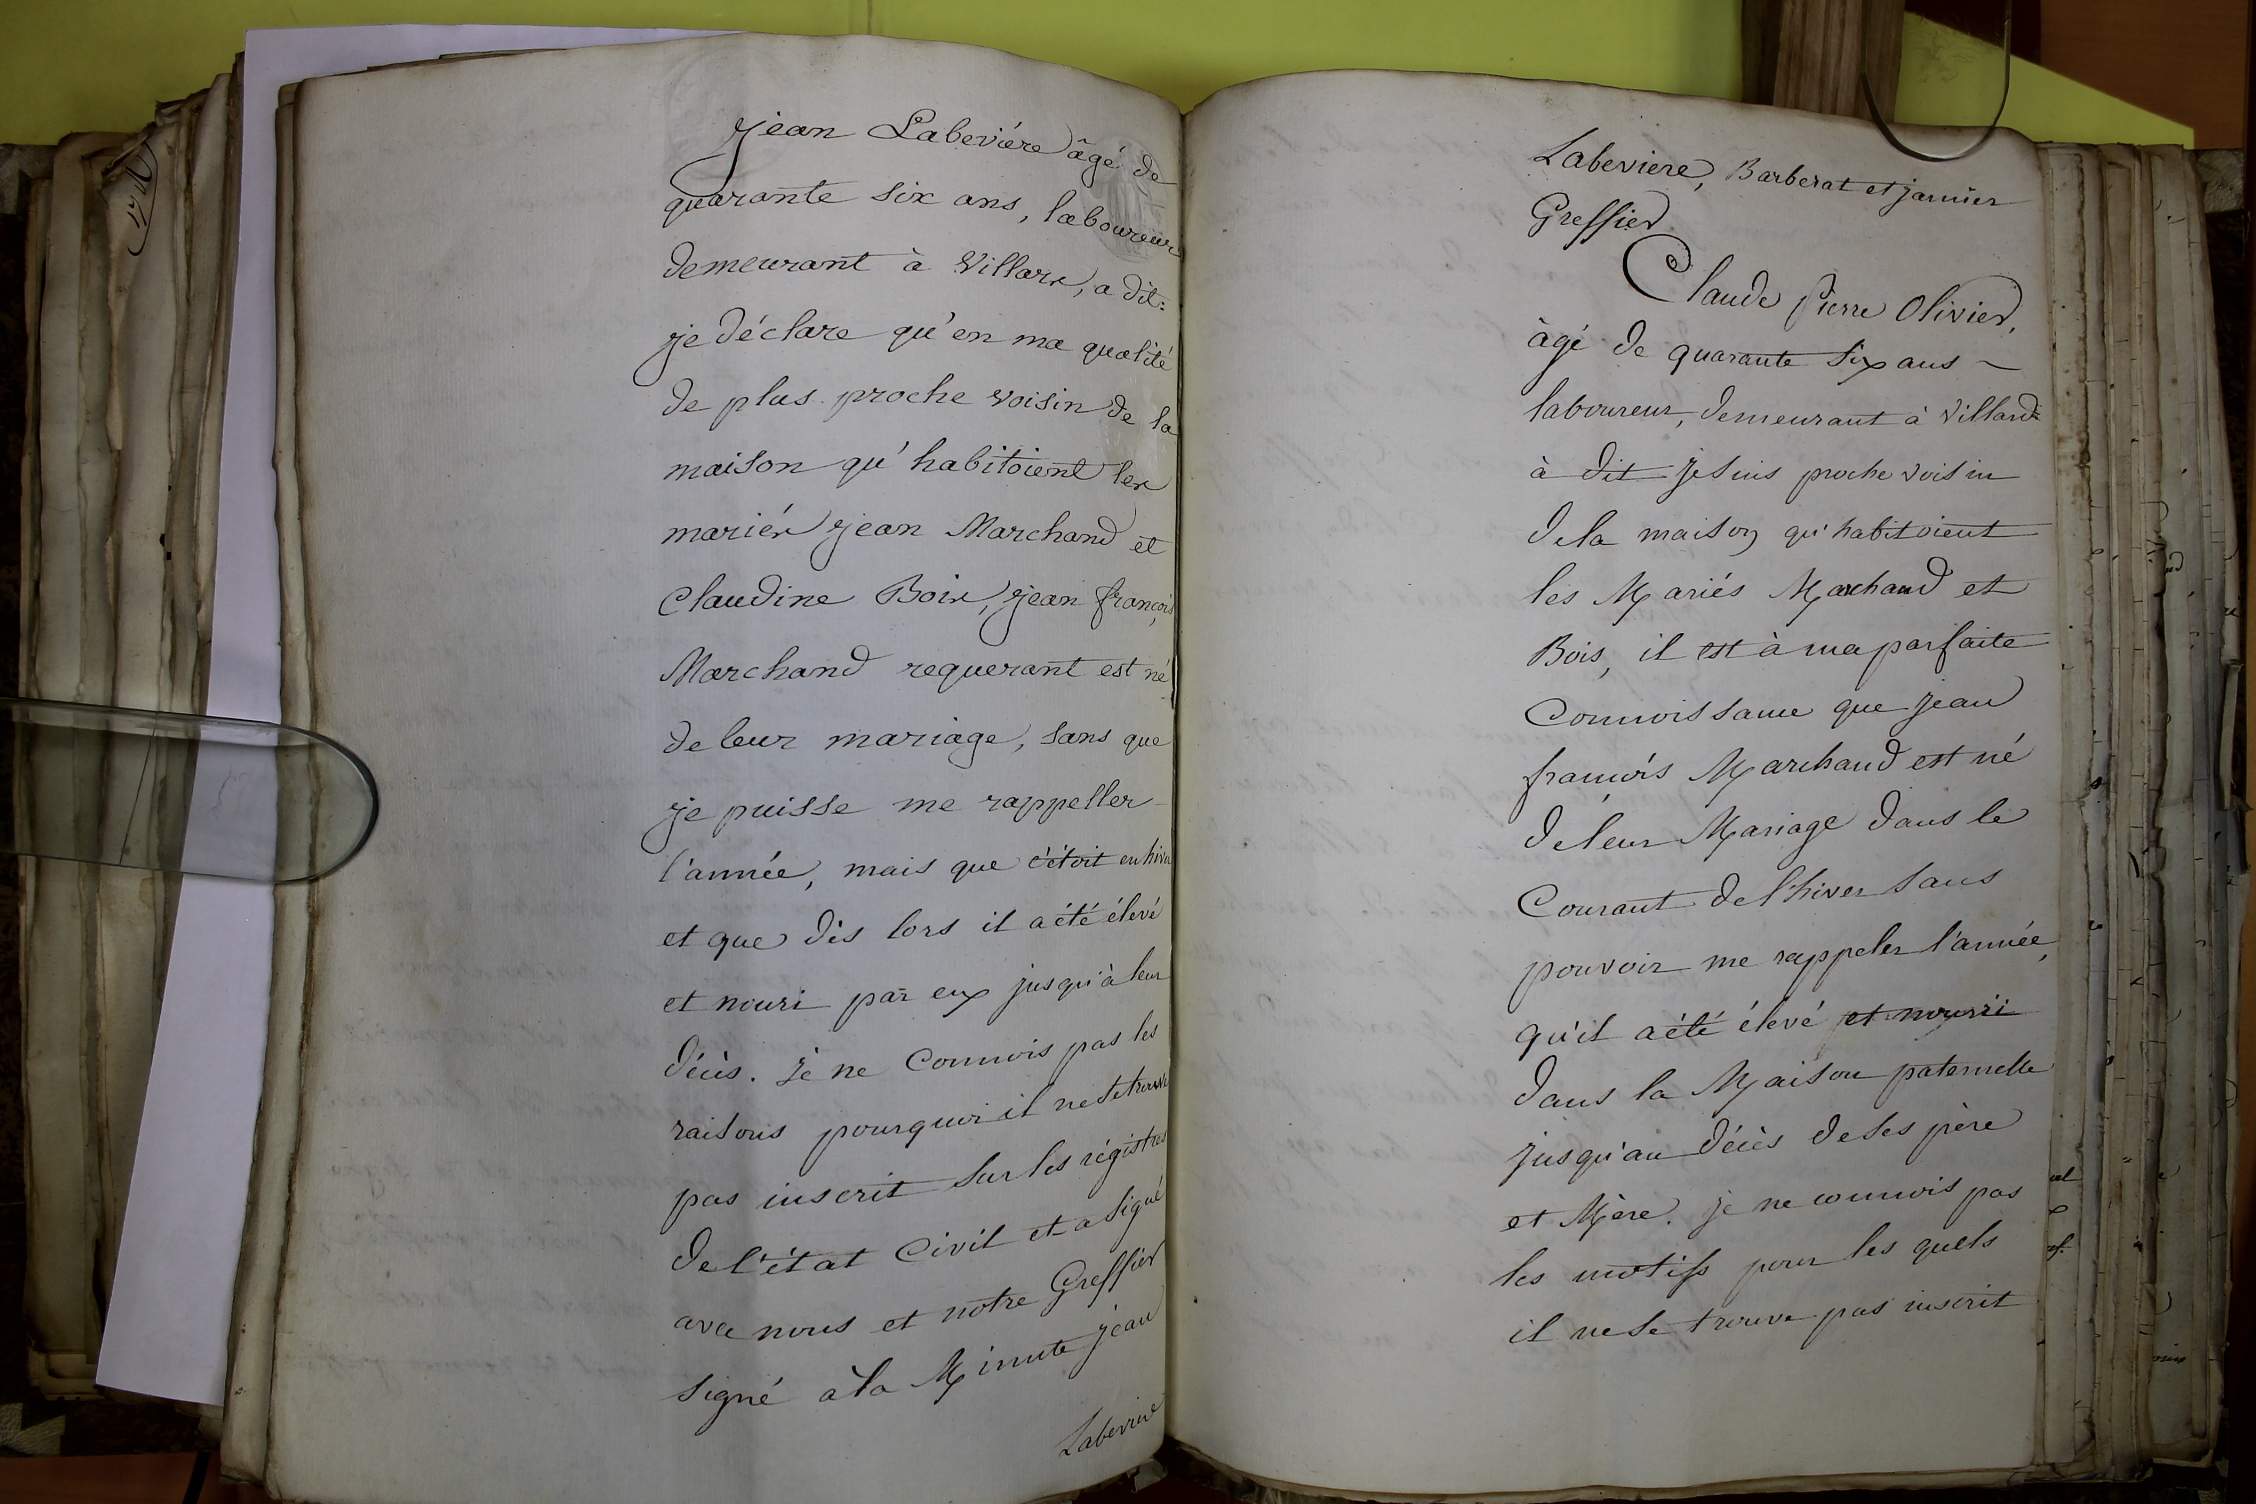 Jean Labeviére âgé de
quarante six ans, laboureur
demeurant à Villars, a dit:
je déclare qu'en ma qualité
de plus proche voisin de la
maison qu'habitoient les
mariés jean Marchand et
Claudine Bois, jean françois
Marchand requerant est né
de leur mariage, sans que
je puisse me rappeller
l'année, mais que c'étoit en hiver
et que dès lors il a été élevé
et nouri par eux jusqu'à leur
décès. je ne connois pas les
raisons pourquoi il ne se trouve
pas inscrit sur les régistres
de l'état Civil et a signé
avec nous et notre Greffier
signé à la Minute jean
Labeviere
Labeviere, Barberat et janier
Greffier
Claude Pierre Olivier,
âgé de quarante six ans
laboureur, demeurant à Villards
à dit je suis proche voisin
de la maison qu'habitoient
les Mariés Marchand et
Bois, il est à ma parfaite
Connoissance que jean
françois Marchand est né
de leur Mariage dans le
Courant de l'hiver sans
pouvoir me rappeler l'année,
qu'il a été élevé et nourri
dans la Maison paternelle
jusqu'au décès de ses père
et Mère. je ne connois pas
les motifs pour les quels
il ne se trouve pas inscrit